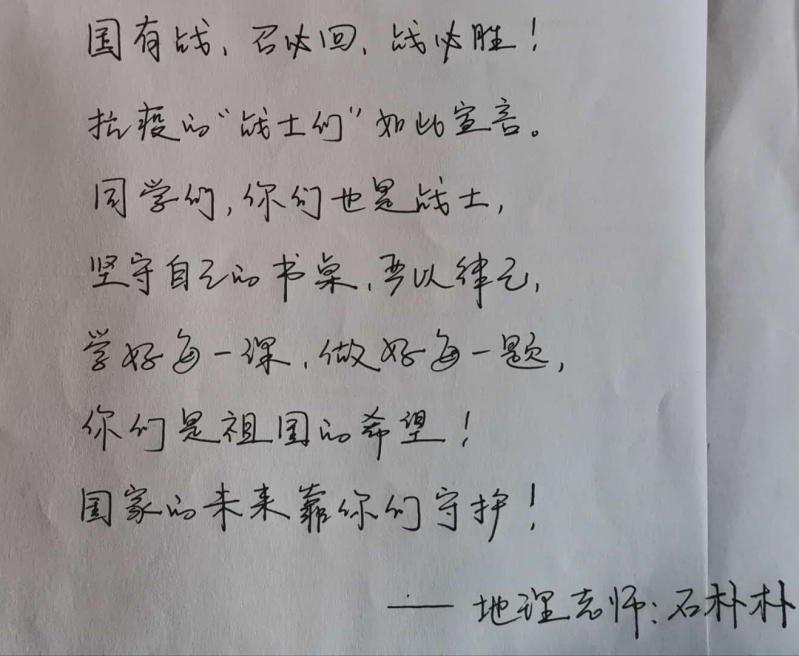 国有战，召必回，战必胜！
抗疫的“战士们”如此宣言。
同学们，你们也是战士，
坚守自己的书桌，严以律己，
学好每一课，做好每一题，
你们是祖国的希望！
国家的未来靠你们守护！
——地理老师：石朴朴